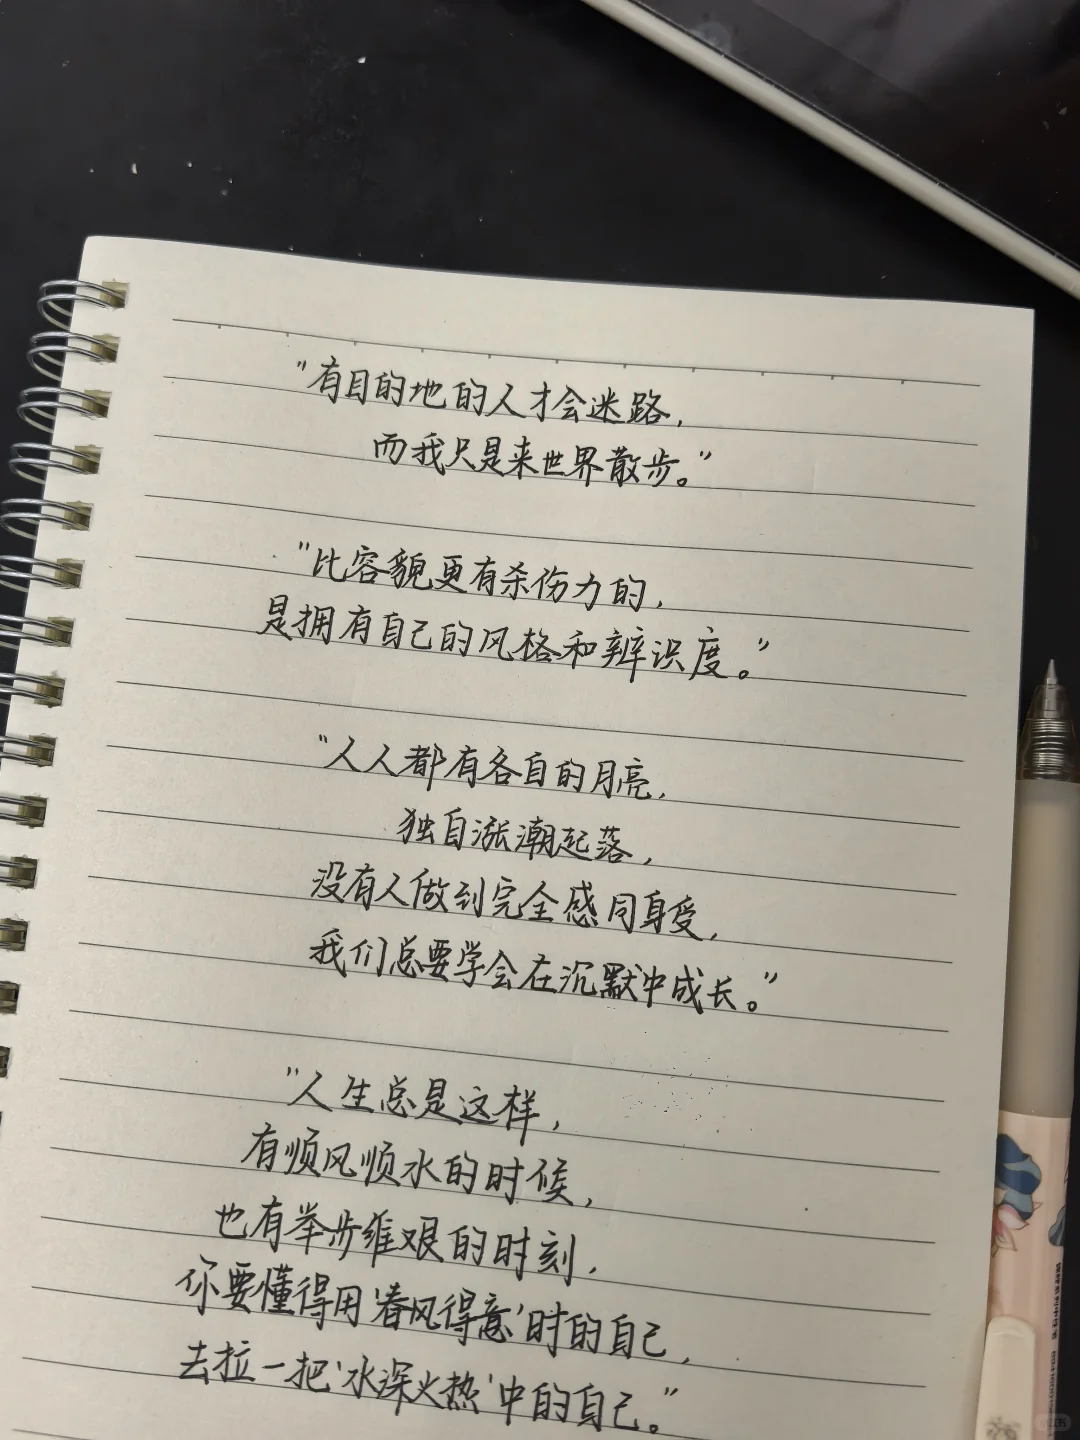 "有目的地的人才会迷路,
而我只是来世界散步。"
"比容貌更有杀伤力的,
是拥有自己的风格和辨识度。"
"人人都有各自的月亮,
独自涨潮起落,
没有人做到完全感同身受,
我们总要学会在沉默中成长。"
"人生总是这样,
有顺风顺水的时候,
也有举步维艰的时刻,
你要懂得用'春风得意'时的自己,
去拉一把'水深火热'中的自己。"